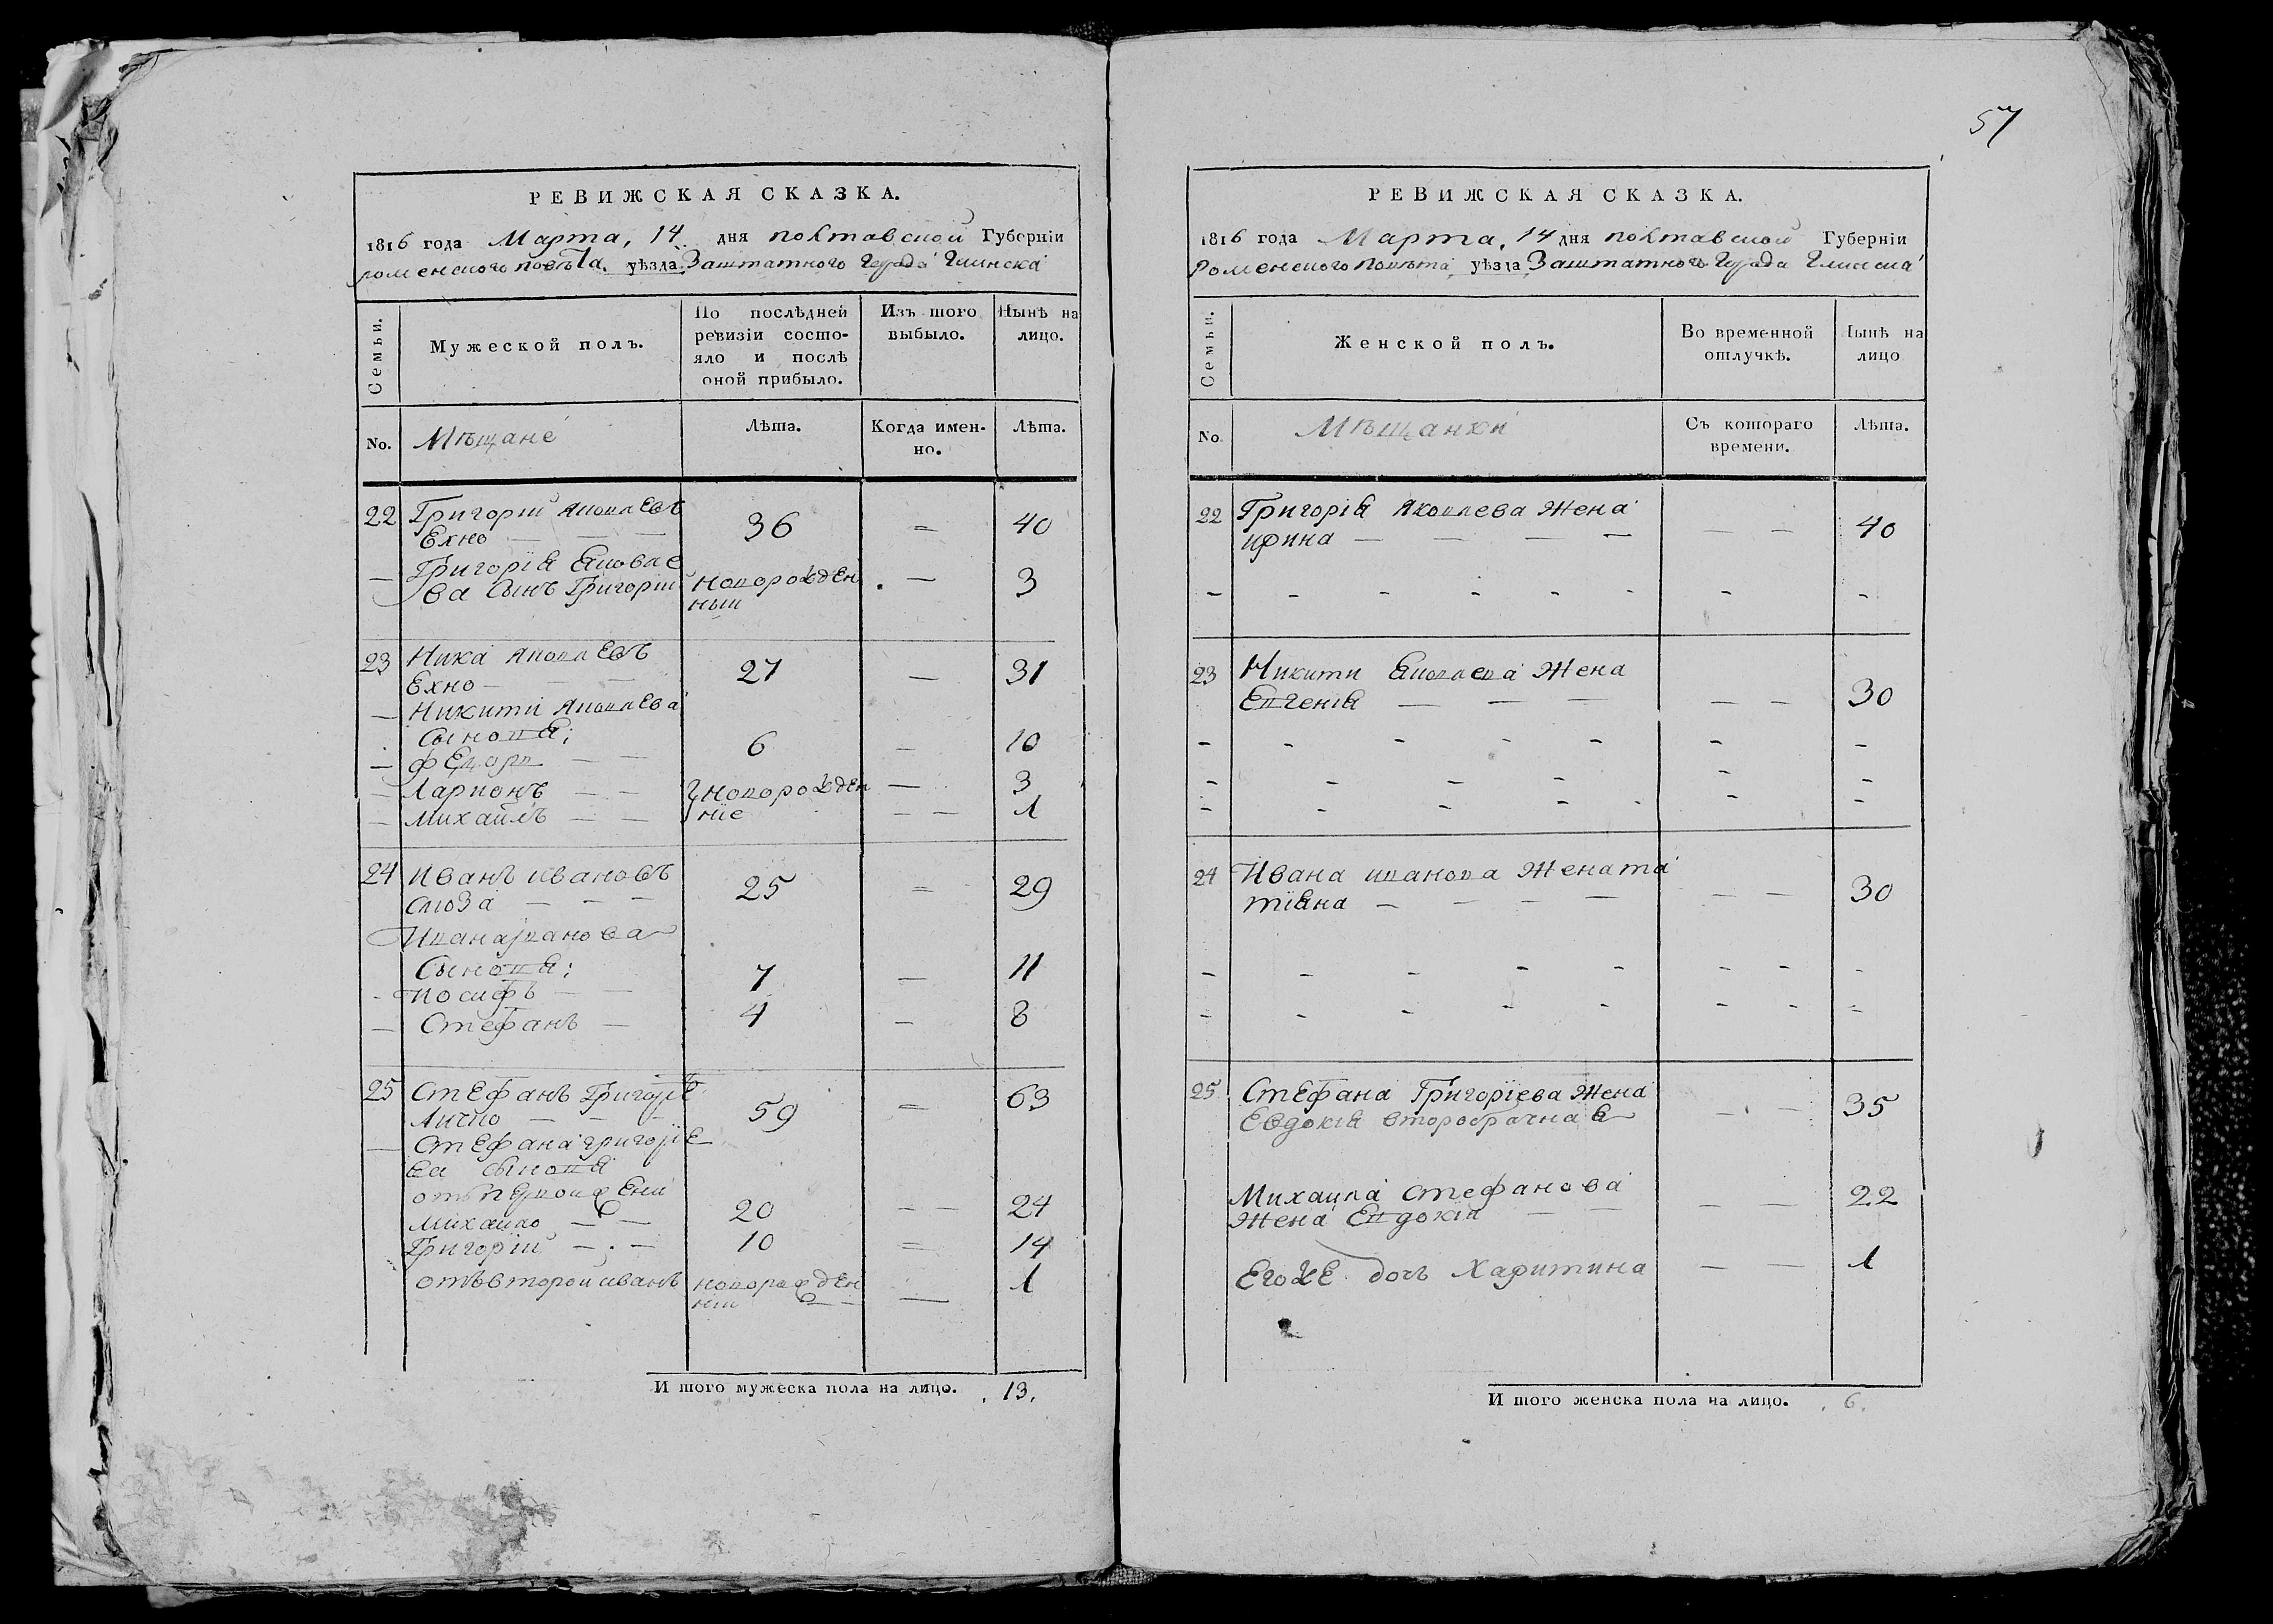 РЕВИЖСКАЯ СКАЗКА.
1816 года Марта, 14 дня полтавской Губерніи
роменского повѣта. уѣзда Заштатного города Глинска
Семьи.
Мужеской полъ.
По послѣдней
ревизіи состо-
яло и послѣ
оной прибыло.
Изъ того
выбыло.
Нынѣ на
лицо.
No. Мѣщане
Лѣта.
Когда имен-
но.
Лѣта.
22 Григорій Яковлевъ
Ехно — — — 36 = 40
— Григорія Яковле
ва Сынъ Григорій новорожден — 3
ный
23 Ника Яковлевъ
Ехно — — 27 — 31
— Никити Яковлева
Сыновя;
— Федоръ — — 6 — 10
— Ларионъ — — новорожден — 3
— Михаилъ — — ніе — — 1
24 Иванъ ивановъ
— — — 25 = 29
Ивана иванова
Сыновя;
- Иосифъ — — 7 — 11
— Стефанъ — 4 — 8
25 Стефанъ Григорїе
— — — 59 = 63
— Стефана григорїе
ва сыновя
отъ первой жени
Михайло — — 20 — — 24
Григорій — . — 10 = 14
отъ второй иванъ новорожден — 1
ній
И того мужеска пола на лицо. . 13.
57
РЕВИЖСКАЯ СКАЗКА.
1816 года Марта, 14 дня полтавской Губерніи
Роменского повѣта, уѣзда Заштатного города Глинска
Семьи.
Женской полъ.
Во временной
отлучкѣ.
Нынѣ на
лицо
No. Мѣщанки
Съ котораго
времени.
Лѣта.
22 Григорія Яковлева Жена
ирина — — — — — — 40
23 Никити Яковлева Жена
Евгенія — — — — — 30
24 Ивана иванова Жена та
тіяна — — — — — — 30
25 Стефана Григорїева Жена
Евдокія второбрачная — — 35
Михайла стефанова
Жена Евдокія — — — — 22
Его же дочь Харитина — — 1
И того женска пола на лицо. . 6.